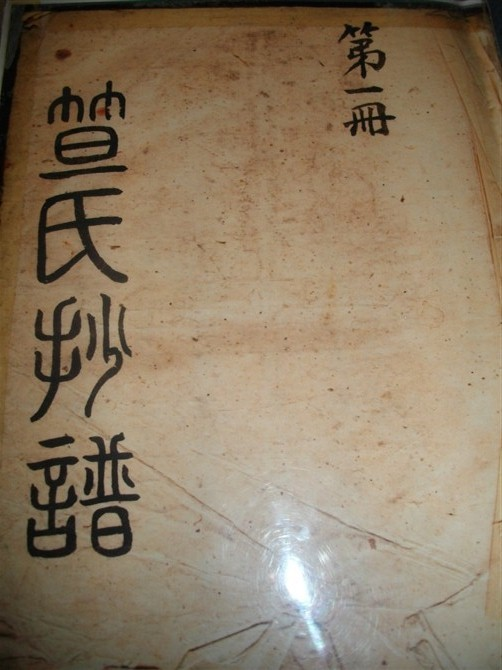 第一冊
笪氏抄譜